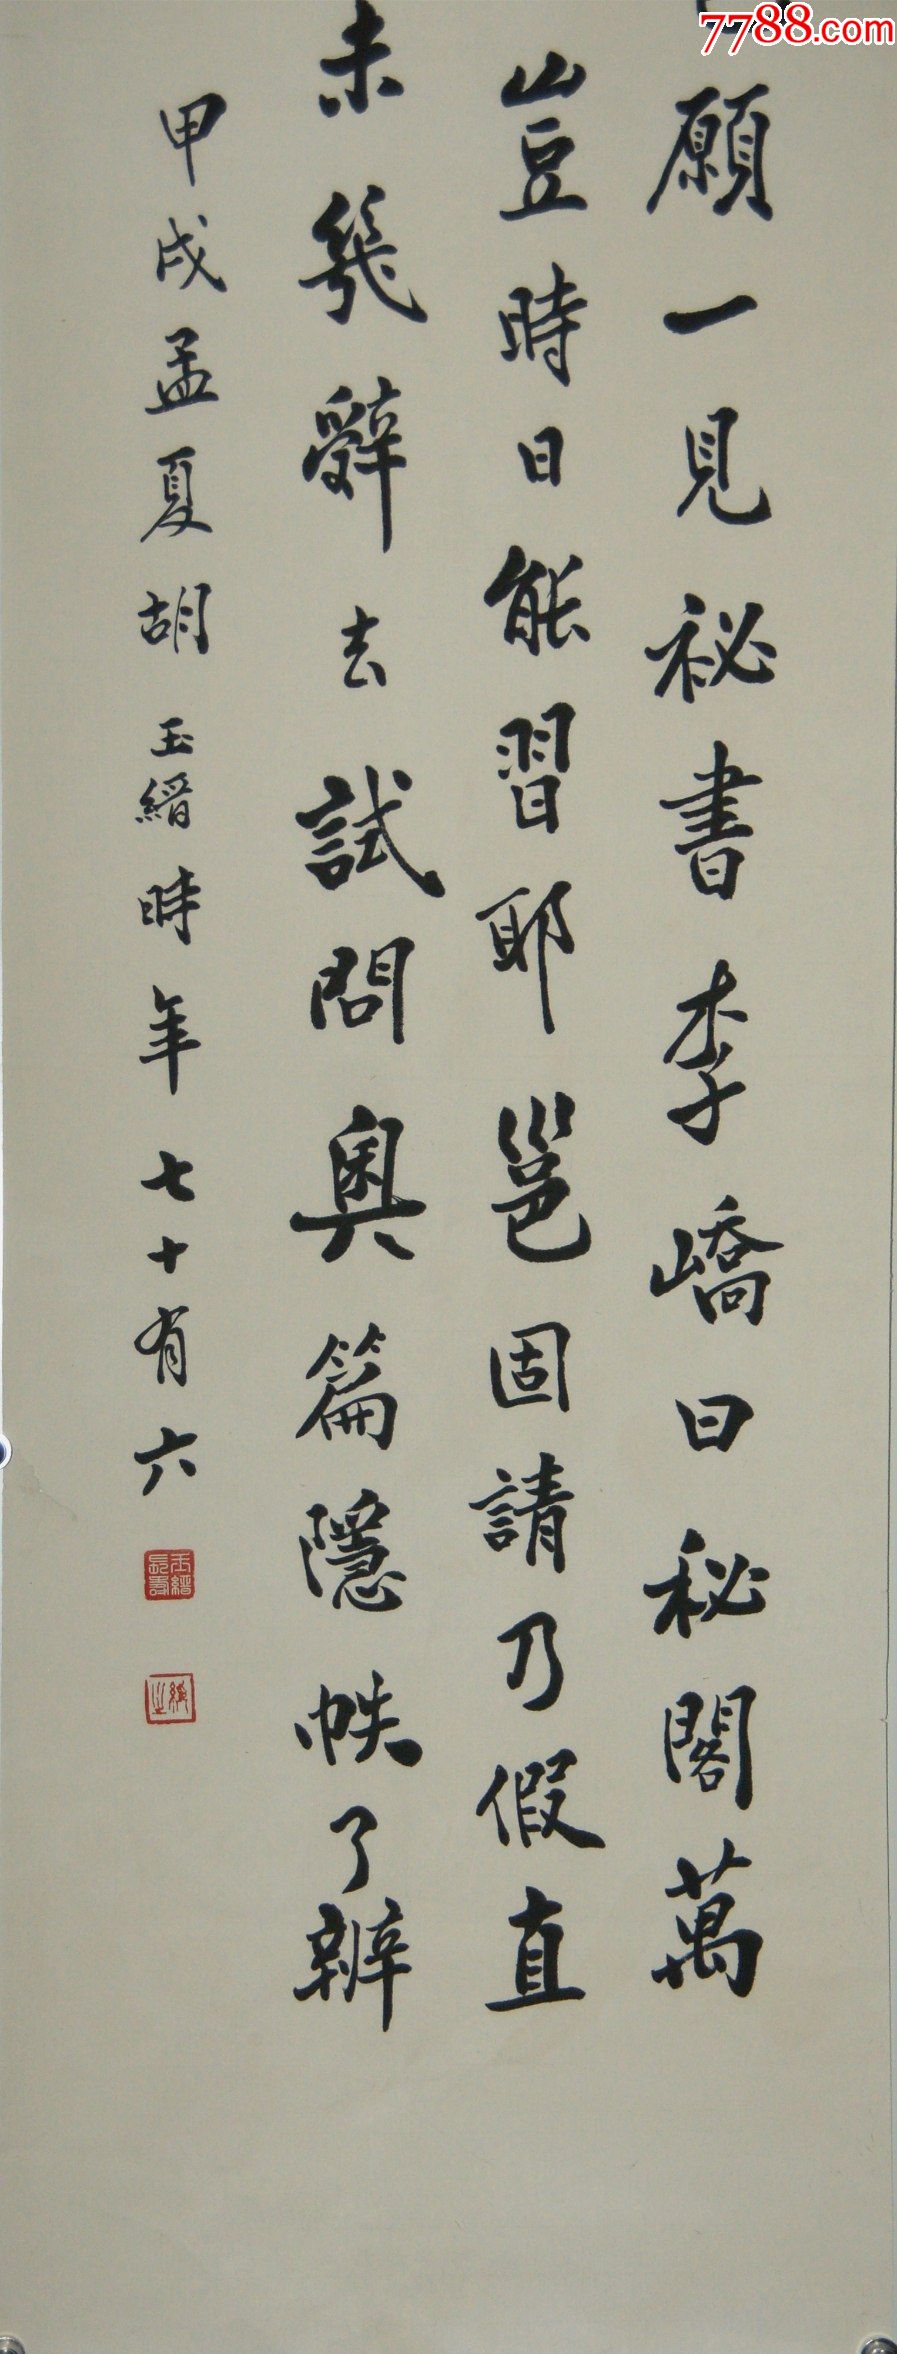 7788.com
願一見秘書李嶠曰秘閣萬
豈時日能習耶邕固請乃假直
未幾辭去試問奧篇隱帙了辨
甲戌孟夏胡玉縉時年七十有六
玉縉長壽
綏之